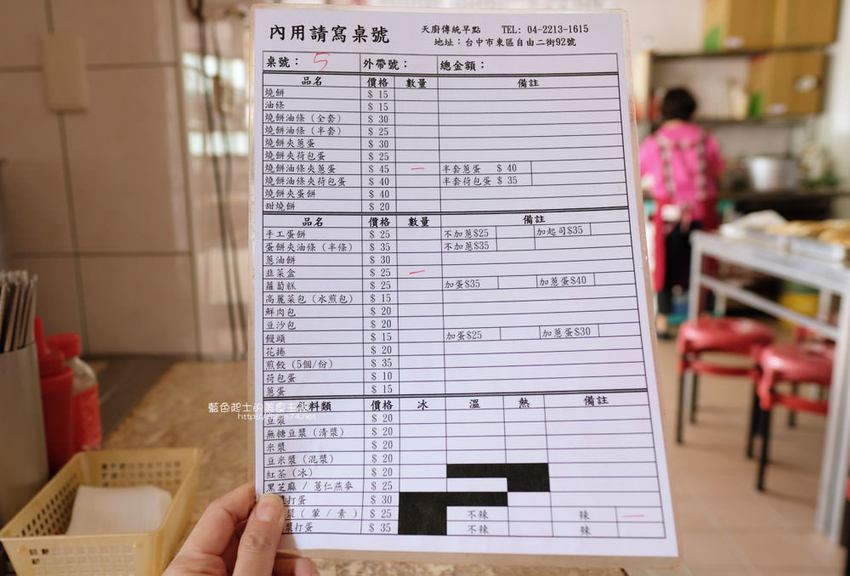 內用請寫桌號
天廚傳統早點 TEL: 04-2213-1615
地址：台中市東區自由二街92號
桌號： 5 外帶號： 總金額：
品名 價格 數量 備註
燒餅 $ 15
油條 $ 15
燒餅油條（全套） $ 30
燒餅油條（半套） $ 25
燒餅夾蔥蛋 $ 30
燒餅夾荷包蛋 $ 25
燒餅油條夾蔥蛋 $ 45 一 半套蔥蛋 $ 40
燒餅油條夾荷包蛋 $ 40 半套荷包蛋 $ 35
燒餅夾蛋餅 $ 40
甜燒餅 $ 20
品名 價格 數量 備註
手工蛋餅 $ 25 不加蔥$25 加起司$35
蛋餅夾油條（半條） $ 35 不加蔥$35
蔥油餅 $ 30
韭菜盒 $ 25 一
蘿蔔糕 $ 25 加蛋$35 加蔥蛋$40
高麗菜包（水煎包） $ 15
鮮肉包 $ 20
豆沙包 $ 20
饅頭 $ 15 加蛋$25 加蔥蛋$30
花捲 $ 20
煎餃（5個/份） $ 35
荷包蛋 $ 10
蔥蛋 $ 15
飲料類 價格 冰 溫 熱 備註
豆漿 $ 20
無糖豆漿（清漿） $ 20
米漿 $ 20
豆米漿（混漿） $ 20
紅茶（冰） $ 20
黑芝麻 / 薏仁燕麥 $ 25
打蛋 $ 30
漿（ 葷 / 素 ） $ 25 不辣 辣 一
打蛋 $ 35 不辣 辣
藍色起士的美食主